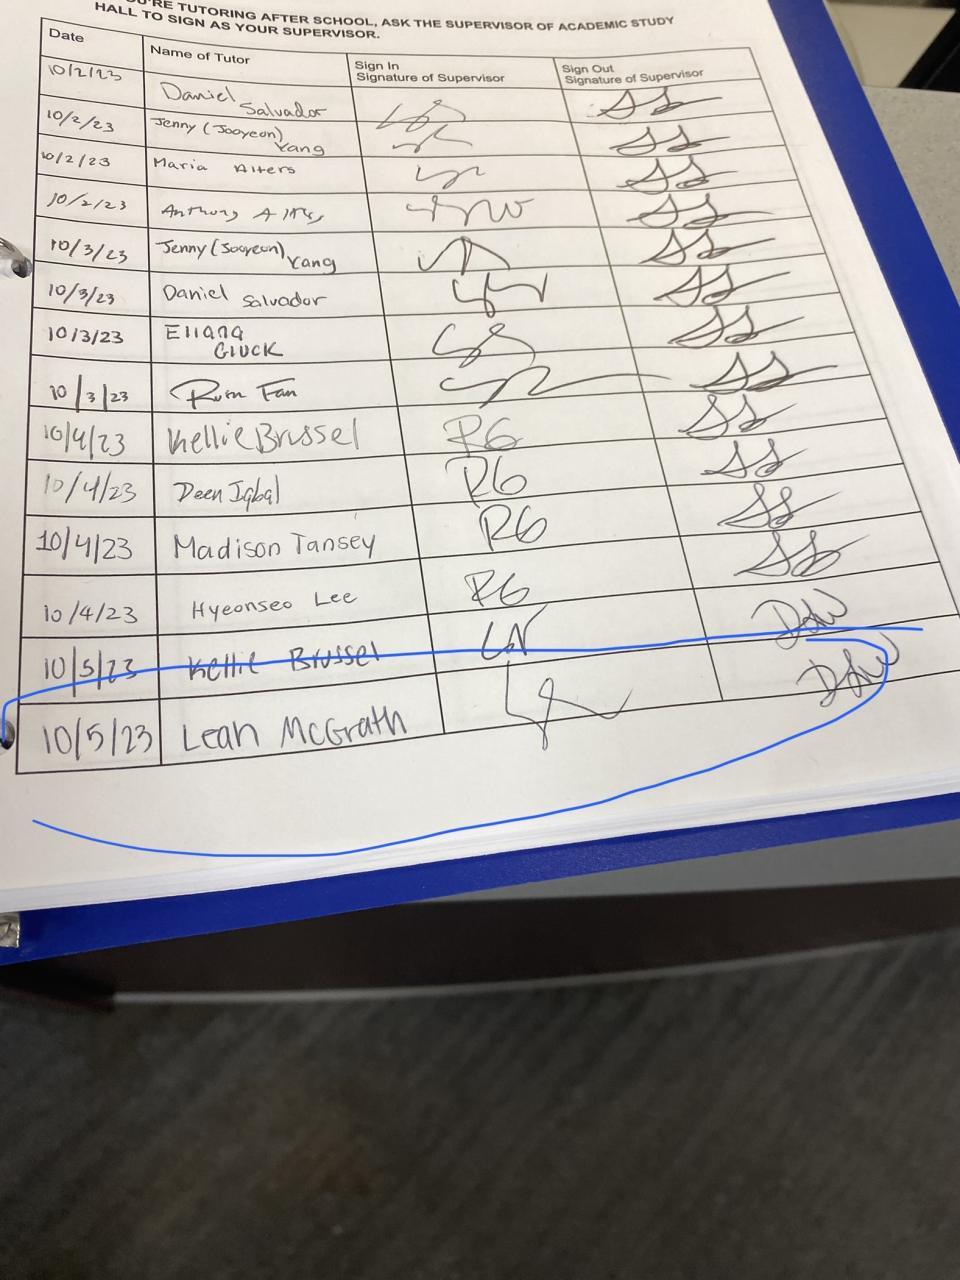 TUTORING AFTER SCHOOL, ASK THE SUPERVISOR OF ACADEMIC STUDY
HALL TO SIGN AS YOUR SUPERVISOR.
Date
Name of Tutor
Sign In
Signature of Supervisor
Sign Out
Signature of Supervisor
10/2/23 Daniel Salvador SS
10/2/23 Jenny (Jooyeon) Yang SS
10/2/23 Maria Alters SS
10/2/23 Anthony SS
10/3/23 Jenny (Jooyeon) Yang SS
10/3/23 Daniel Salvador SS
10/3/23 Ellana Gluck SS
10/3/23 Fan SS
10/4/23 Kellie Brussel RG SS
10/4/23 Deen Iqbal RG SS
10/4/23 Madison Tansey RG SS
10/4/23 Hyeonseo Lee RG SS
10/5/23 Kellie Brussel
10/5/23 Leah McGrath